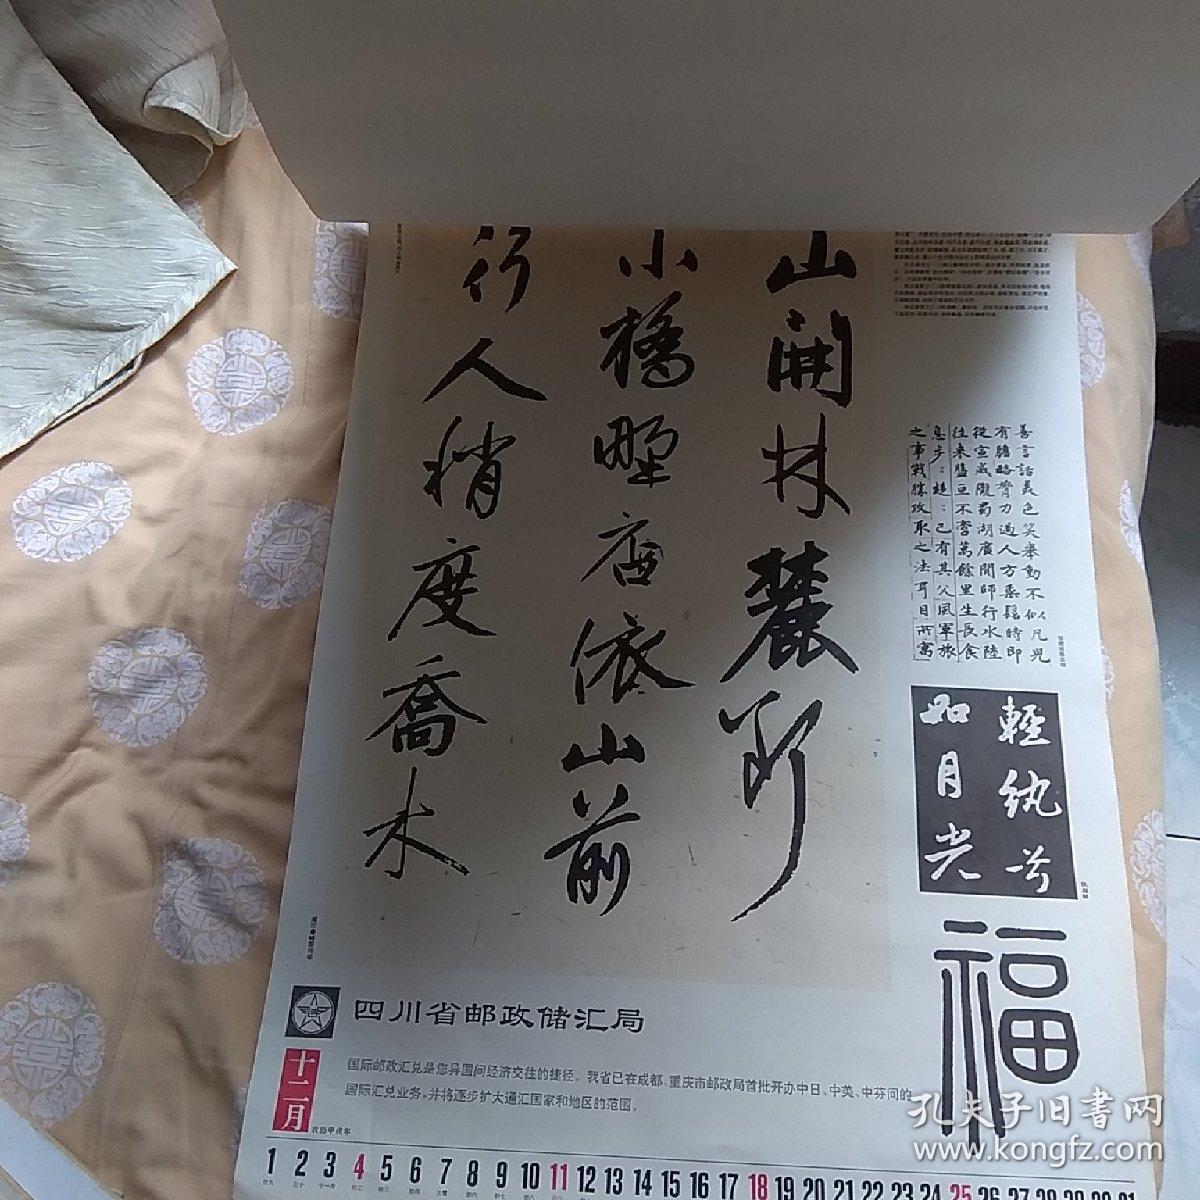 山開林麓斷
小橋野店依山前
行人稍度喬木
善言話美色笑舉動不似凡兒
有膽略膂力過人方垂髫時即
從宣威隴蜀湖廣間師行水陸
往來盤亘不啻萬餘里生長食
息步:趨:已有其父風軍旅
之事戰勝攻取之法耳目所寓
輕紈兮
如月光
福
四川省邮政储汇局
国际邮政汇兑是您异国间经济交往的捷径。我省已在成都、重庆市邮政局首批开办中日、中英、中芬间的
国际汇兑业务。并将逐步扩大通汇国家和地区的范围。
十二月
农历甲戌年
1 2 3 4 5 6 7 8 9 10 11 12 13 14 15 16 17 18 19 20 21 22 23 24 25 26 27 28 29
孔夫子旧书网
www.kongfz.com